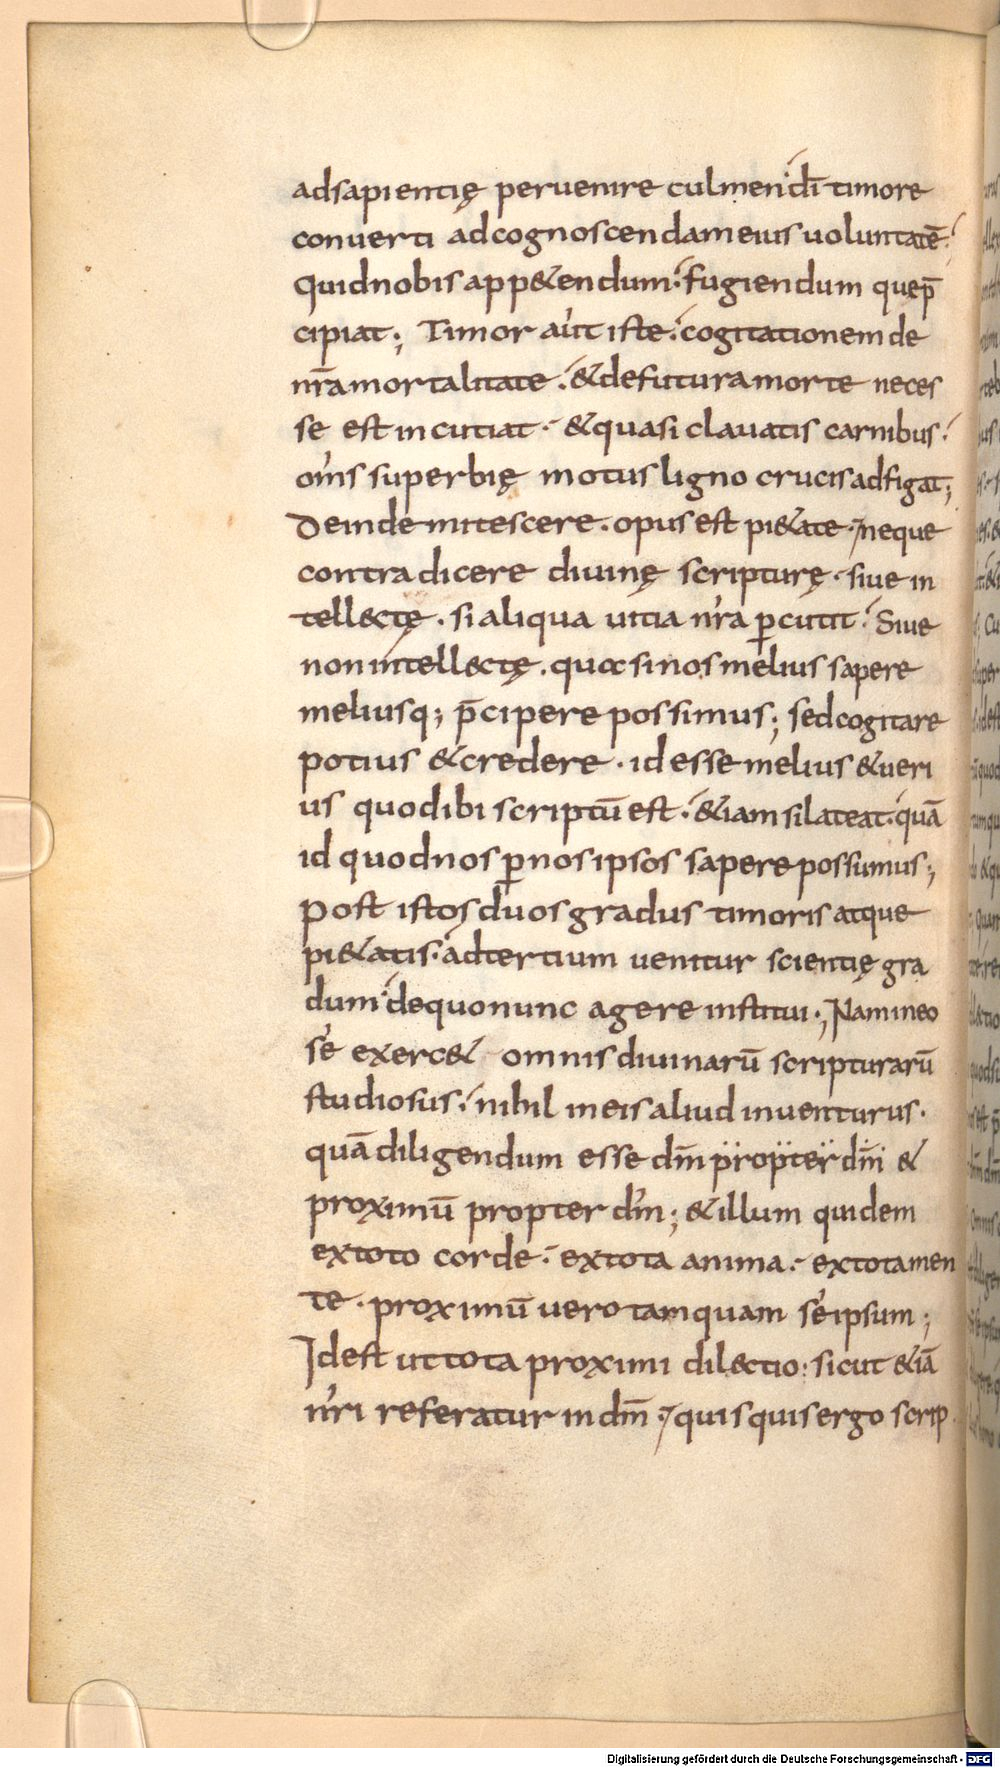 adsapientię peruenire culmen dī timore
conuerti adcognoscendam eius uoluntatē·
Quidnobis app&endum· fugiendum quep̄
cipiat; Timor aut iste· cogitationem de
nr̄a mortalitate· &defutura morte neces
se est incutiat· &quasi clauatis carnibus·
om̄s superbię motus ligno crucis adfigat;
Deinde mitescere· opus est pi&ate· neque
contradicere diuinę scripturę· siue in
tell&cte̜· si aliqua uitia nr̄a ꝑcutit· Siue
non intell&cte̜· quasi nos melius sapere
meliusq; p̄cipere possimus; sedcogitare
potius &credere· id esse melius &ueri
us quod ibi scriptū est· &iam silateat· quā
id quod nos ꝑ nos ipsos sapere possumus;
Post istos duos gradus timoris atque
pi&atis· adtertium uenitur scientię gra
dum· dequo nunc agere institui· Nam ineo
se exerc& omnis diuinarū scripturarū
studiosus· nihil ineis aliud inuenturus·
quā diligendum esse dm̄ propter dm̄ &
proximū propter dm̄; &illum quidem
extoto corde· extota anima· extotamen
te· proximū uero tamquam seipsum;
Idest uttota proximi dil&ctio· sicut &iā
nr̄i referatur indm̄· quisquis ergo scrip
Digitalisierung gefördert durch die Deutsche Forschungsgemeinschaft - DFG